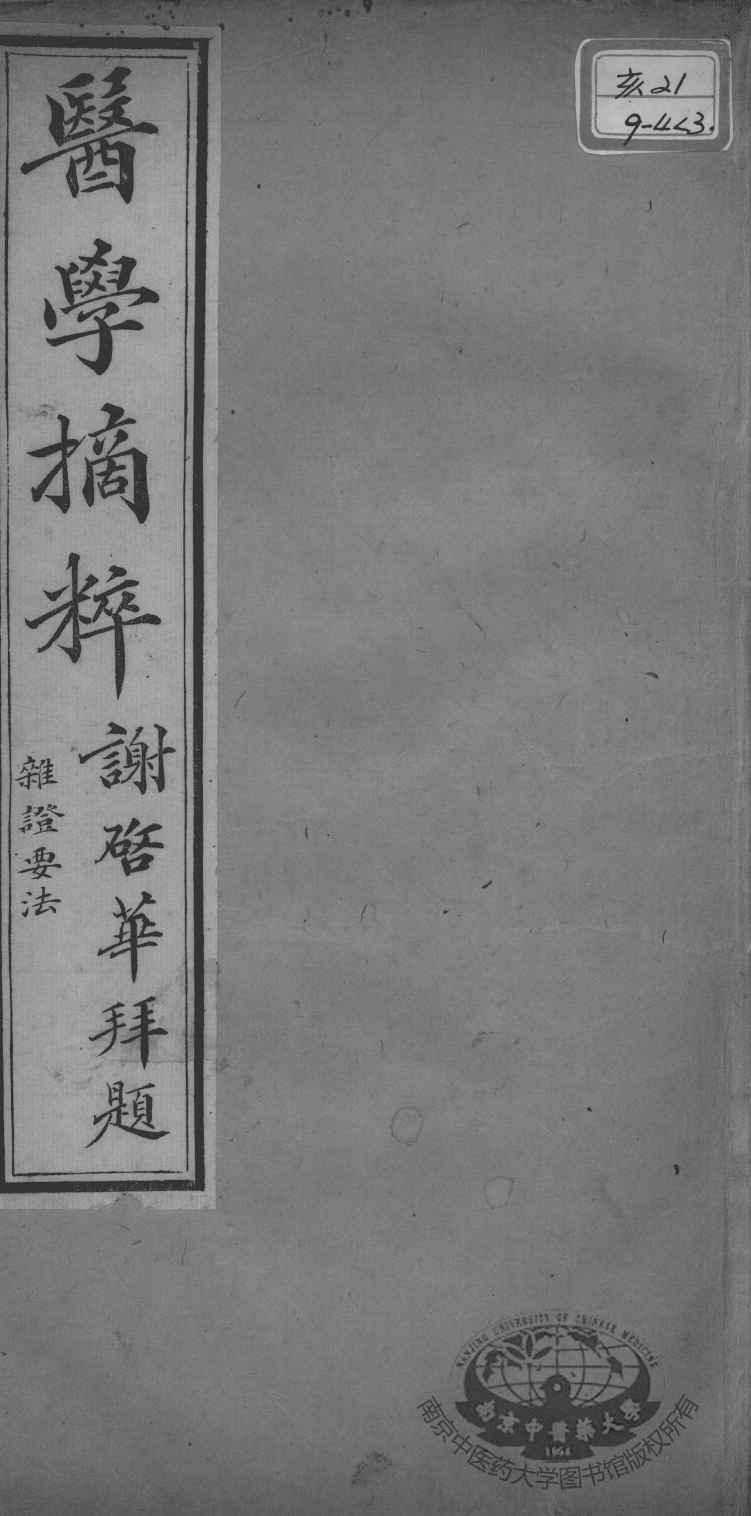 醫學摘粹
謝啓華拜題
雜證要法
亥21
9-423.
NANJING UNIVERSITY OF CHINESE MEDICINE
南京中醫藥大學
1954
南京中医药大学图书馆版权所有